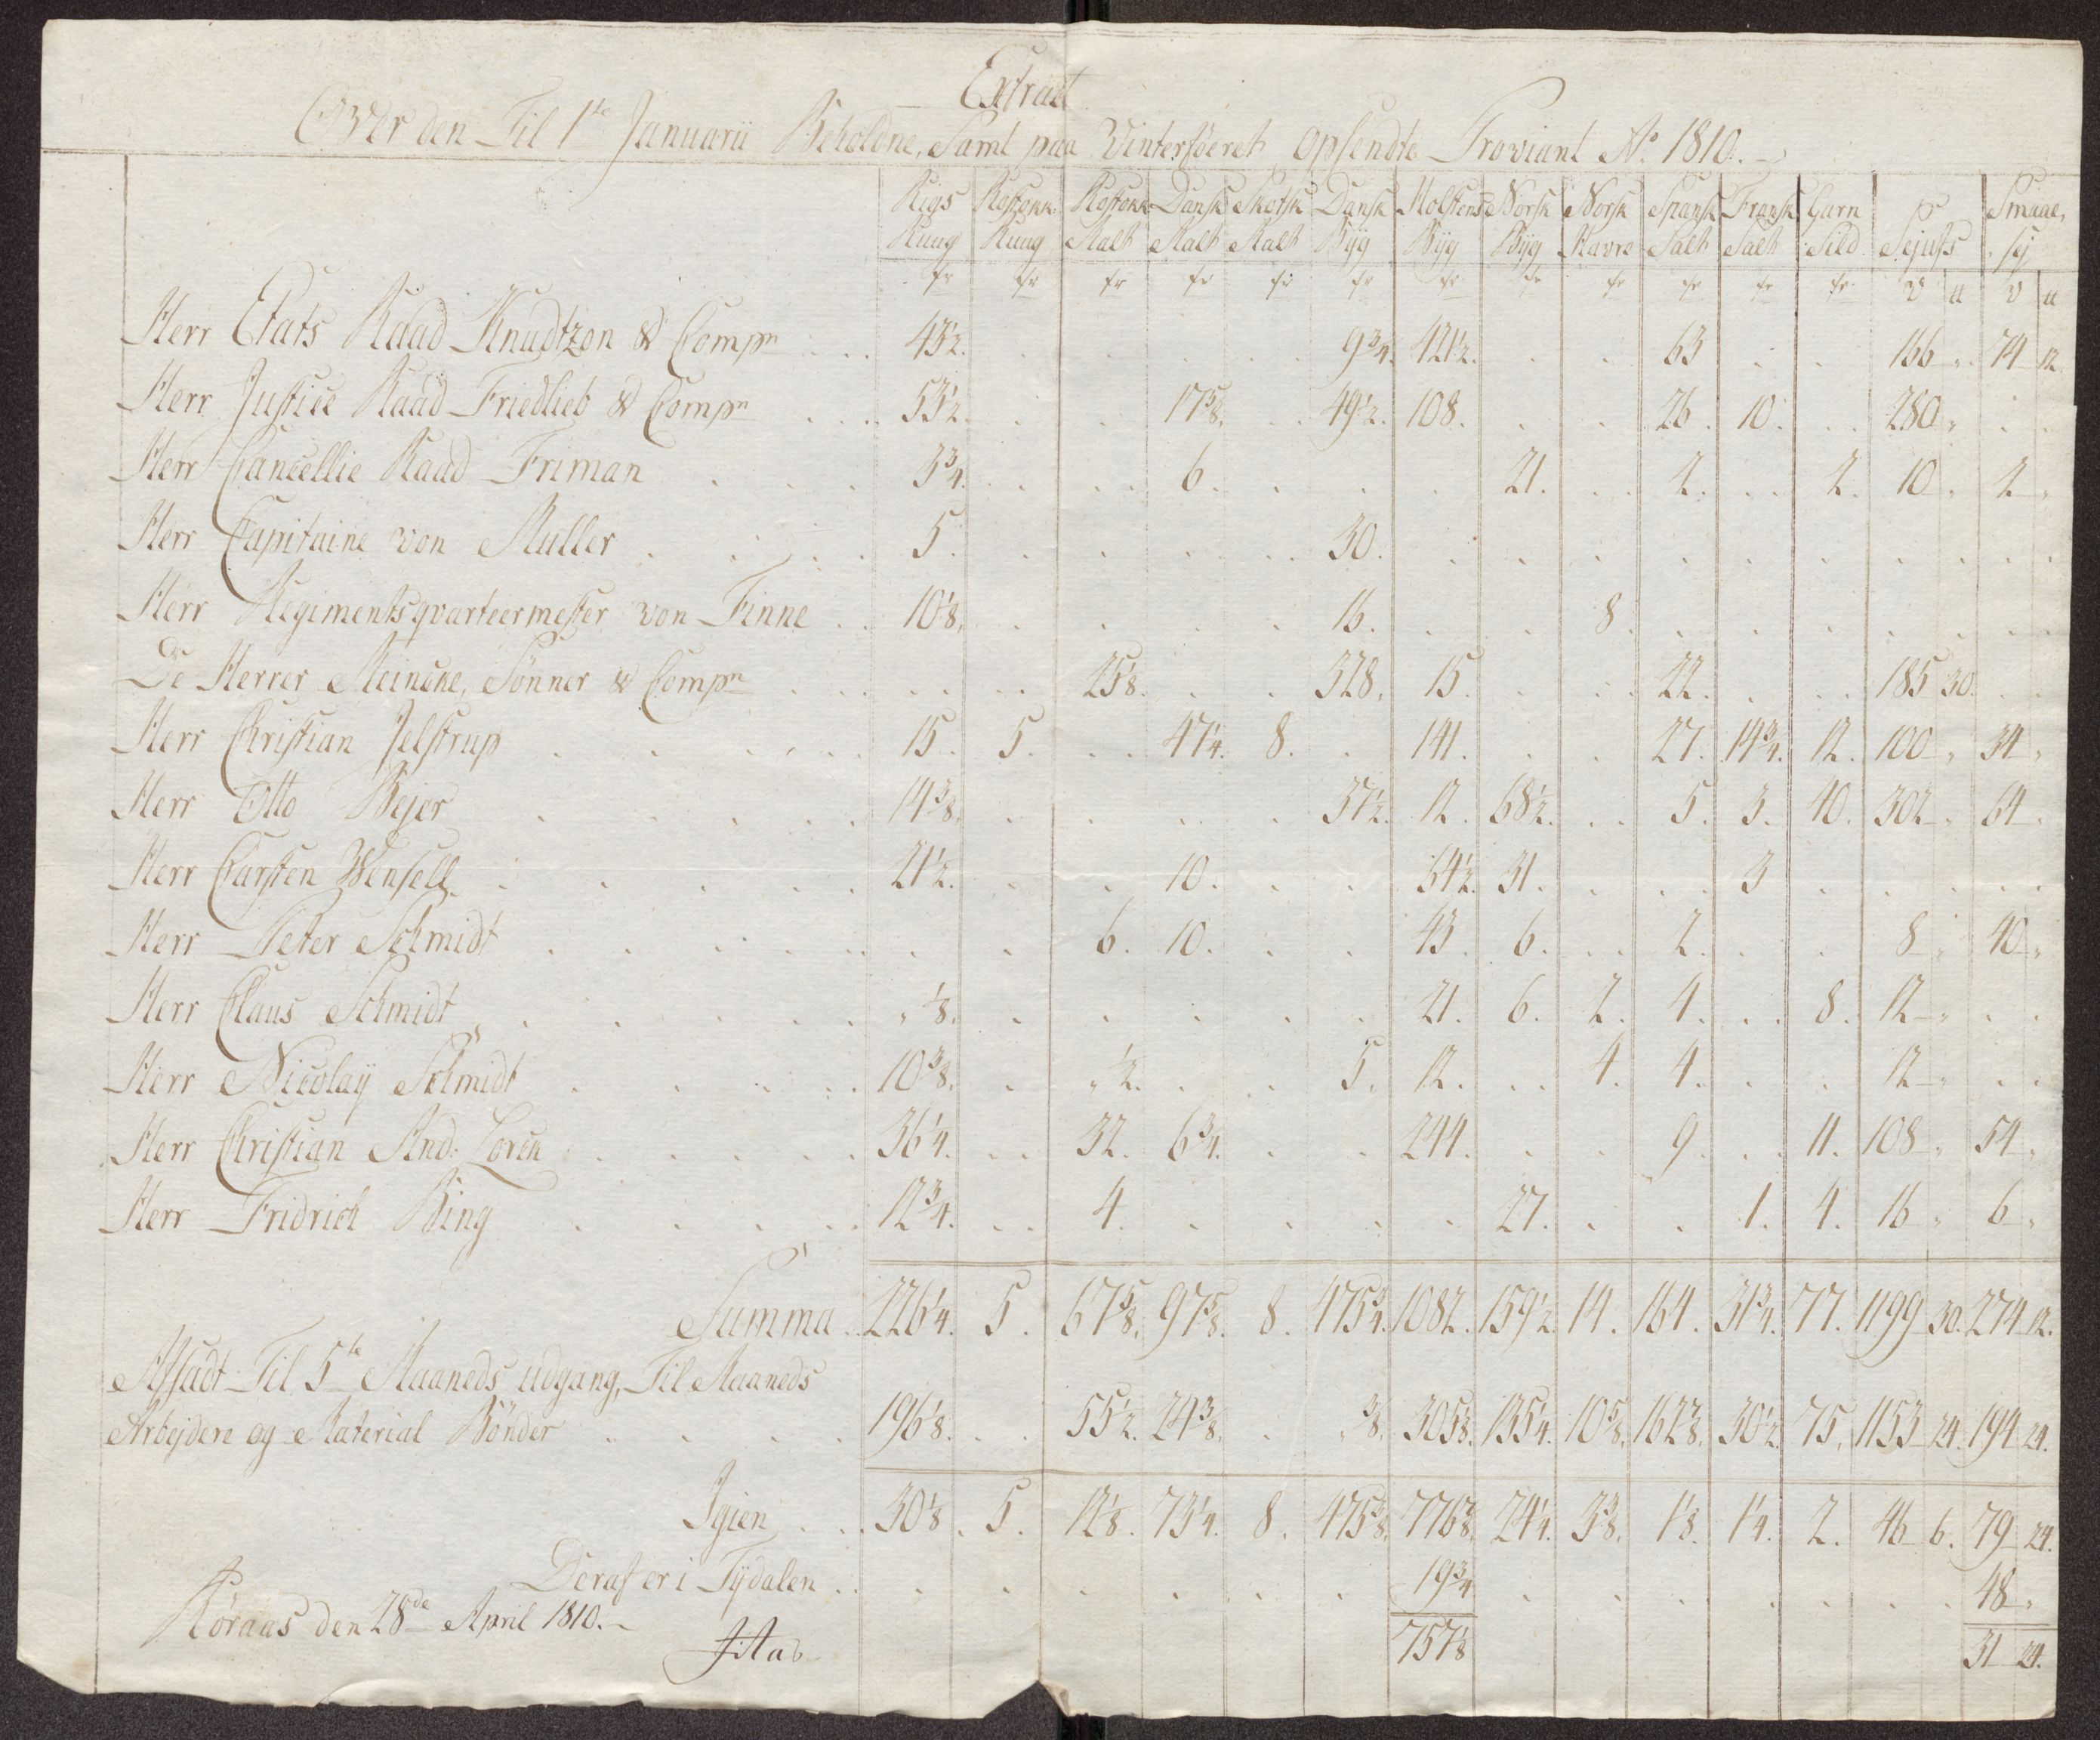 Extract
Over den Til 1te Januarii Beholdne, Samt paa Vinterføeret opsendte Proviant Ao 1810.
Rigs Ruug | Rostokk Ruug | Rostokk Malt | Dansk Malt | Skotsk Malt | Dansk Byg | Holstens Byg | Norsk Byg | Norsk Havre | Spansk Salt | Fransk Salt | Garn Sild | Sejufs | Smaae, sej
Herr Etats Raad Knudtzon & Compn 43 1/2. 9 3/4. 421 1/2. 63 166 " 74 12.
Herr Justice Raad Friedlieb & Compn 53 1/2. 17 5/8. 49 1/2. 108. 26. 10. 280 "
Herr Cancellie Raad Friman 3 3/4. 6. 21. 2. 2. 10 " 2 "
Herr Capitaine von Muller 5. 30.
Herr Regimentsqvarteermester von Finne 10 1/8. 16. 8.
De Herrer Meincke, Sønner & Compn 25 1/8. 328. 15. 22. 185 30.
Herr Christian Jelstrup 15. 5. 47 1/4. 8. 141. 27. 14 3/4. 12. 100 " 34 "
Herr Otto Bejer 14 3/8. 37 1/2. 12. 68 1/2. 5. 3. 40. 302 " 64.
Herr Carsten Wensell 21 1/2. 10. 64 1/2. 31. 3
Herr Peter Schmidt 6. 10. 43. 6. 2. 8 " 40 "
Herr Claus Schmidt " 1/8. 21. 6. 2. 4. 8. 12 "
Herr Nicolay Schmidt 10 3/8. " 1/2. 5. 12. 4. 4. 12 "
Herr Christian And: Lorck 36 1/4. 32. 6 3/4. 244. 9. 11. 108 " 54 "
Herr Fridrich Bing 12 3/4. 4. 27. 1. 4. 16 " 6 "
Summa 226 1/4. 5. 67 5/8. 97 5/8. 8. 475 3/4. 1082. 159 1/2. 14. 164. 31 3/4. 77. 1199 30. 274 12.
Afsadt Til 5te Maaneds udgang, Til Maaneds
Arbejdere og Material Bønder 196 1/8. 55 1/2. 24 3/8. " 3/8. 305 1/8. 135 1/4. 10 5/8. 162 7/8. 30 1/2. 75. 1153 24. 194 24.
Igien 30 1/8. 5. 12 1/8. 73 1/4. 8. 475 3/8. 776 7/8. 24 1/4. 3 3/8. 1 1/8. 1 1/4. 2. 46 6. 79 24.
Deraf er i Tydalen 19 3/4 48 "
Røraas den 28de April 1810.
757 1/8 31 24.